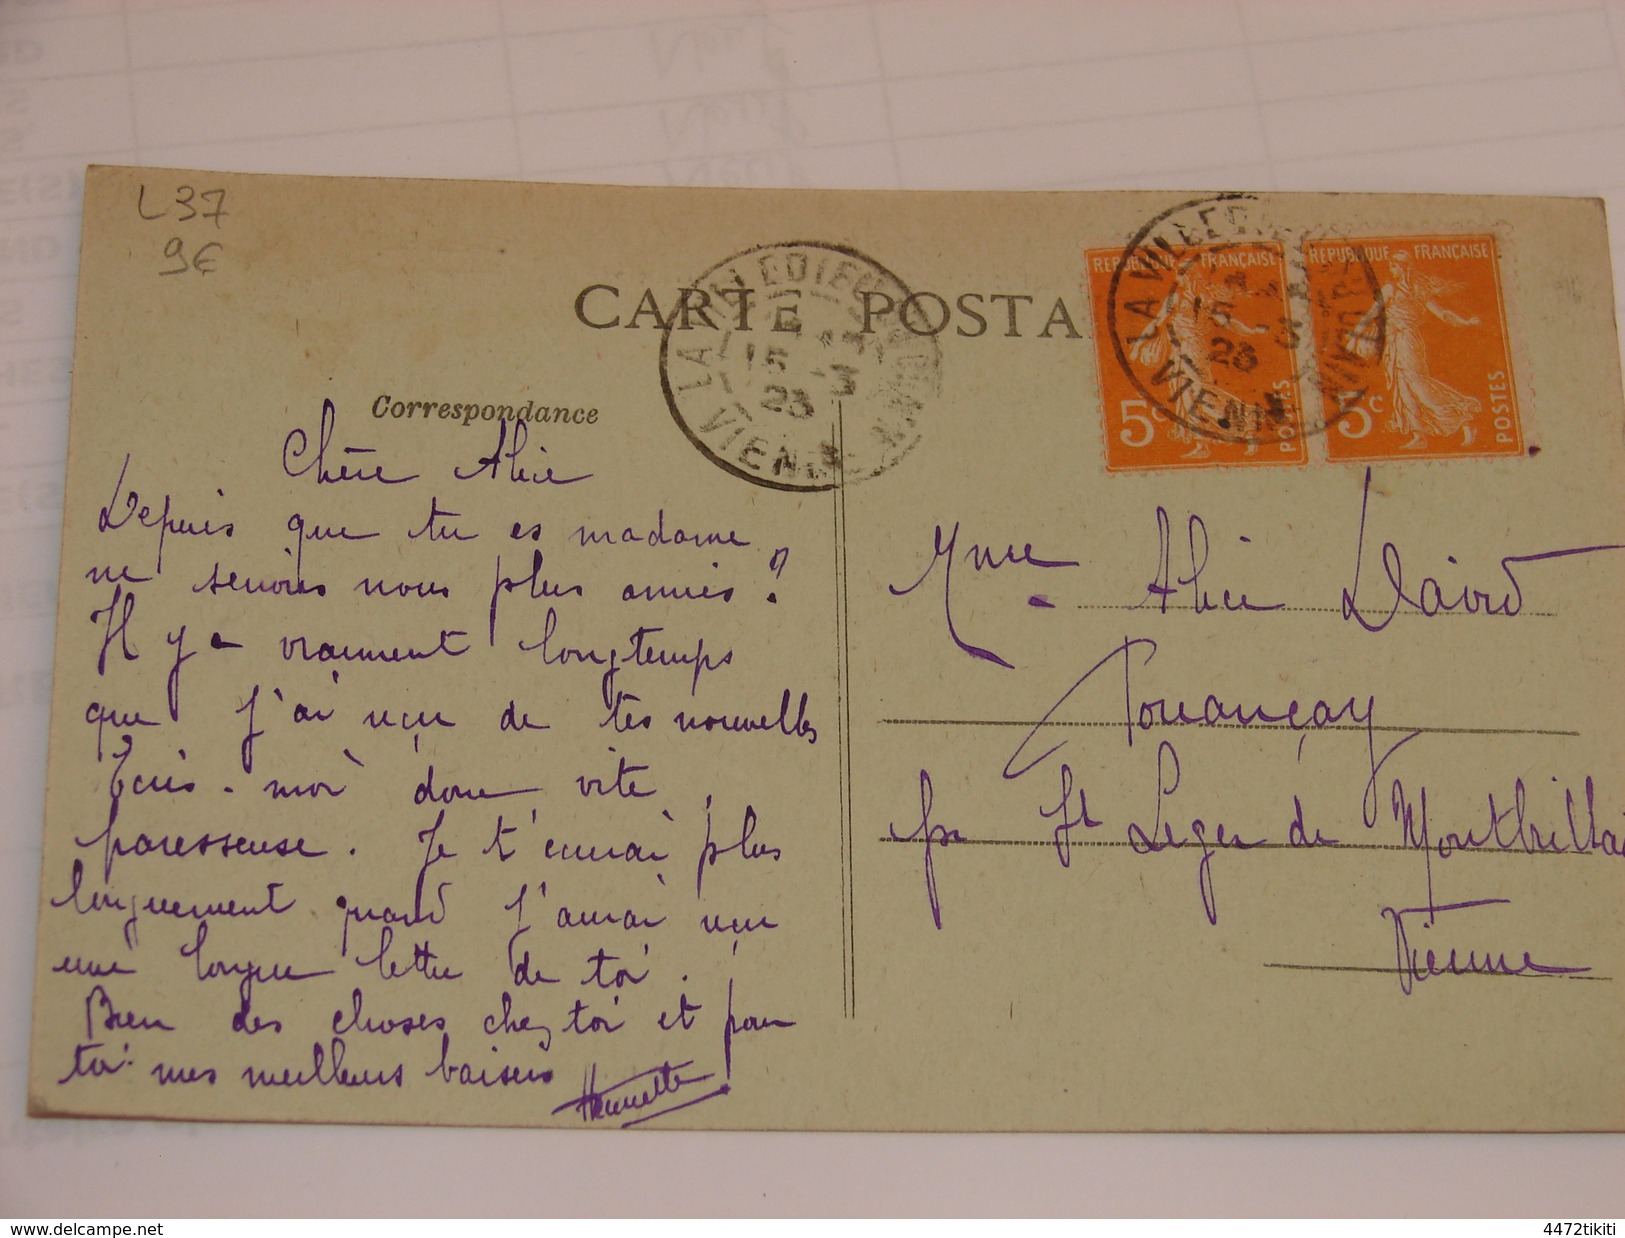 L 37
9€
CARTE POSTA
Correspondance
LA VILLEDIEU
15 - 3
23
VIENNE
REPUBLIQUE FRANÇAISE
5c
POSTES
REPUBLIQUE FRANÇAISE
5c
POSTES
LA VILLEDIEU
15 - 3
23
VIENNE
Chère Alice
Depuis que tu es madame
ne serions nous plus amies ?
Il y a vraiment longtemps
que j'ai reçu de tes nouvelles
Ecris-moi donc vite
paresseuse. Je t'écrirai plus
longuement quand j'aurai reçu
une longue lettre de toi.
Bien des choses chez toi et pour
toi mes meilleurs baisers
Henriette
Mme Alice David
Pouançay
par St Leger de Montbrillai
Vienne
www.delcampe.net
4472tikiti